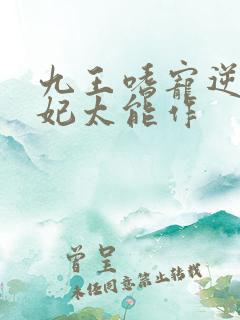 九王嗜宠逆
妃太能作
曾呈
未经同意禁止转载